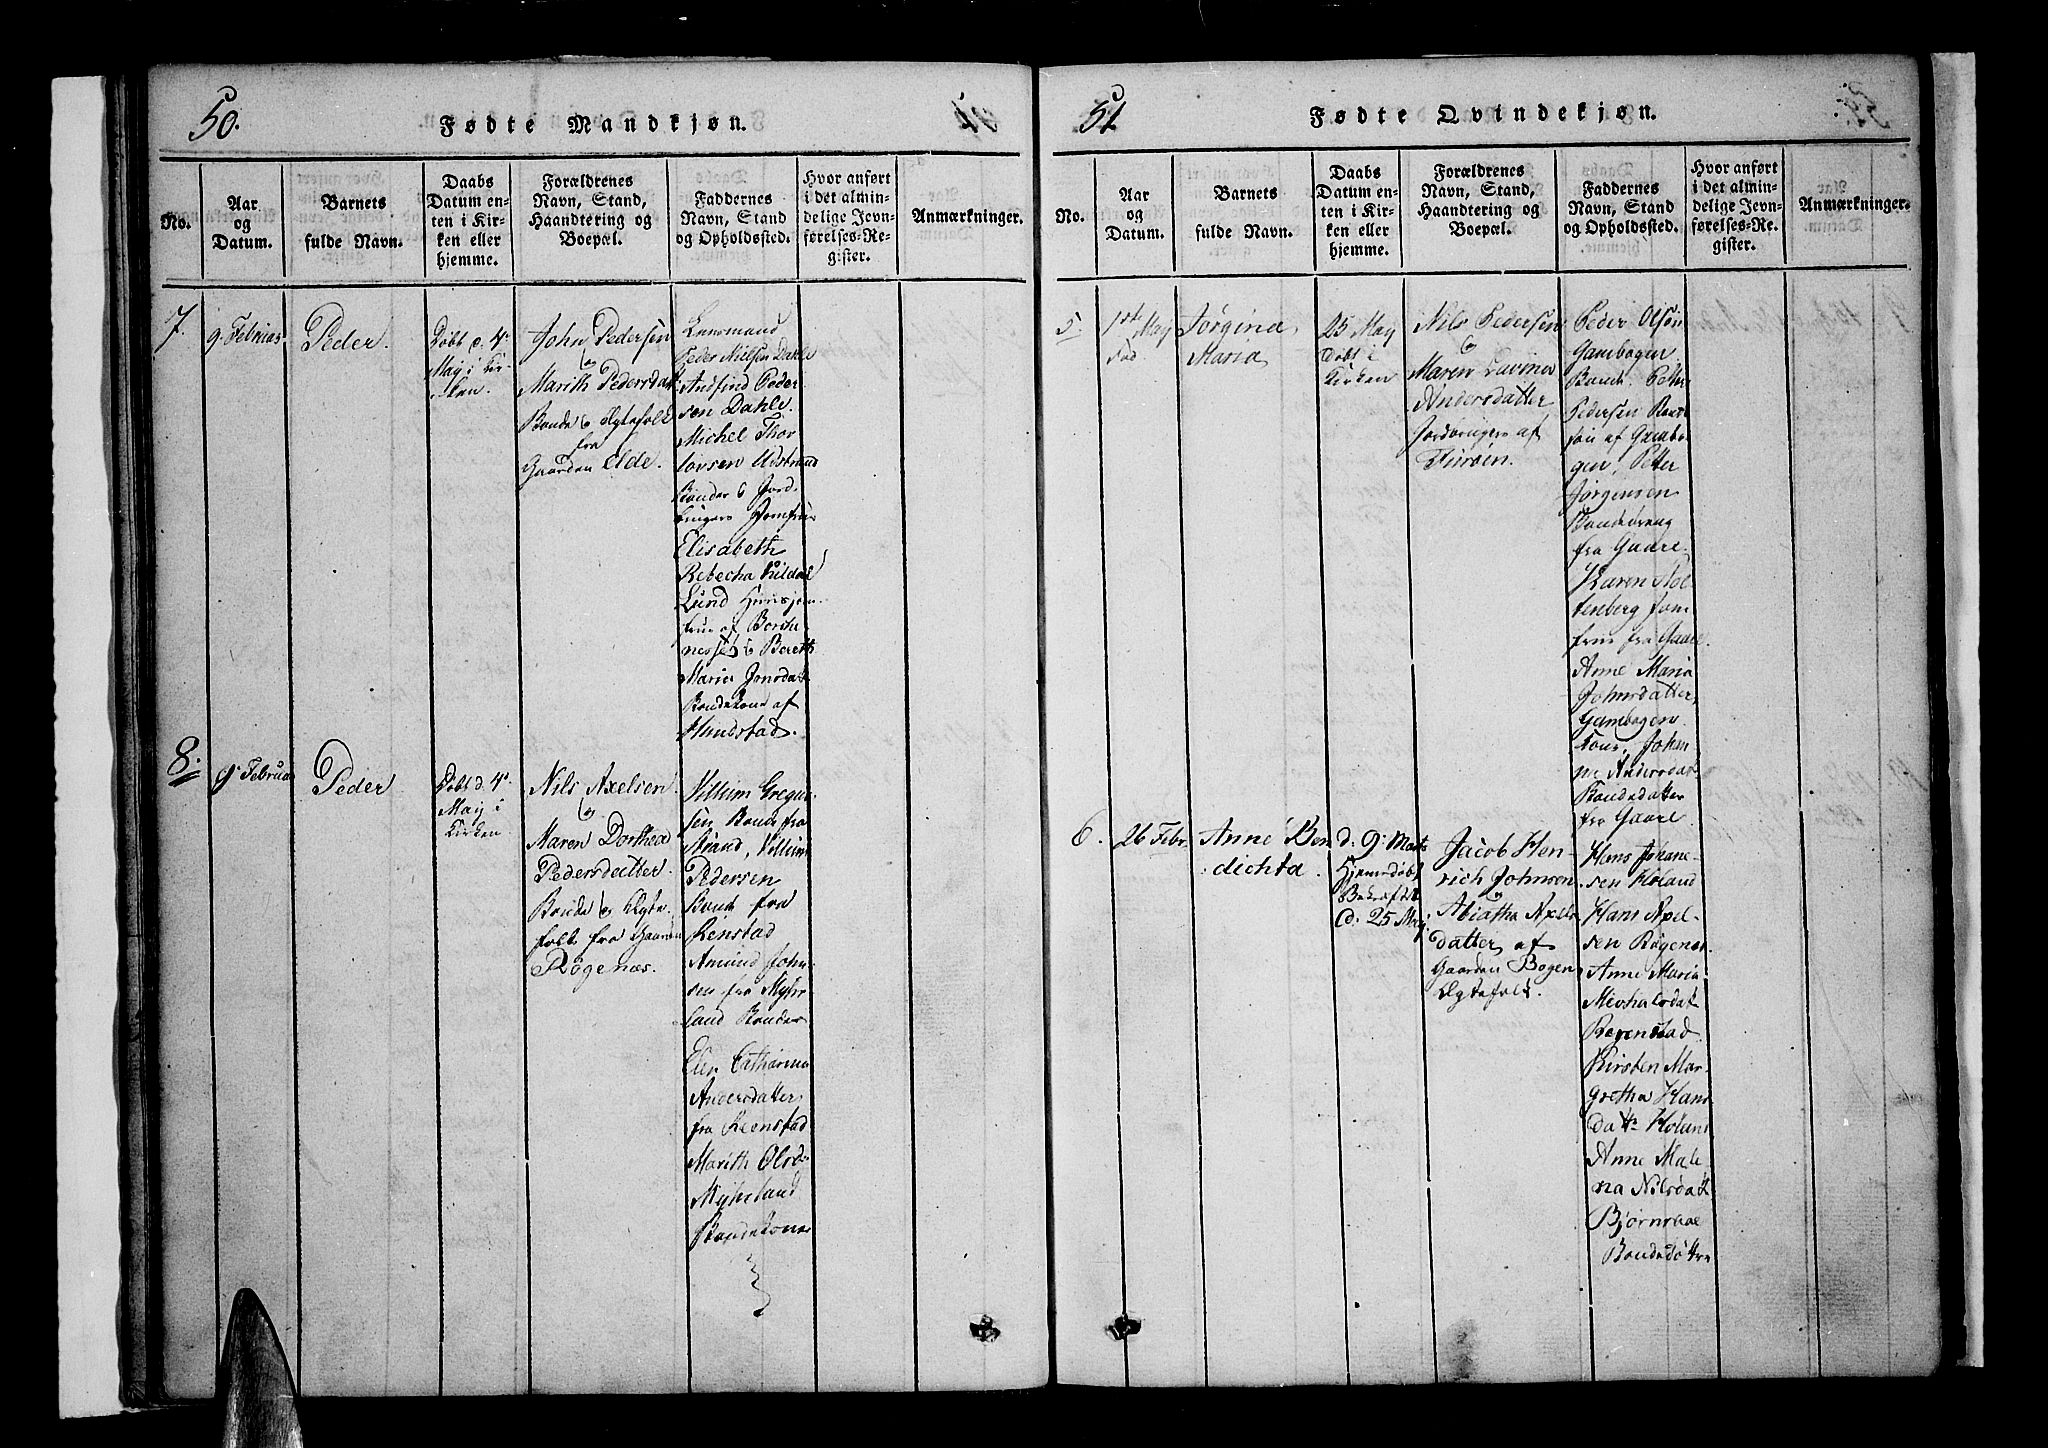 50.
Fødte Mandkjøn.
No.
Aar
og
Datum.
Barnets
fulde Navn.
Daabs
Datum en-
ten i Kir-
ken eller
hjemme.
Forældrenes
Navn, Stand,
Haandtering og
Boepæl.
Faddernes
Navn, Stand
og Opholdssted.
Hvor anført
i det almin-
delige Jevn-
førelses-Re-
gister.
Anmærkninger.
7.
9. Februar
Peder.
Döbt d. 4de
May i Kir-
ken.
John Pedersen
og
Marith Pedersdatt:
Bonde og Ægtefolk
fra
Gaarden Elde.
Lensmand
Peder Nielsen Dahle
Andfind Peder
sen Dahle.
Michel Thor
lovsen Udstrand
Bönder og Jord-
brugere Jomfrue
Elisabeth
Rebecha Hildal
Lund
frue af
Bereth
Maria Jonsdatt
Bondekone af
Hundstad.
8.
9. Februar
Peder
Döbt d. 4de
May i
Kirken
Nils Axelsen
og
Maren Dorthea
Pedersdatter.
Bonde og Ægte
folk fra Gaarden
Rögenæs.
Villum Gregus
sen Bonde fra
Strand, Villum
Pedersen
Bonde fra
Renstad
Amund John-
sen fra Myhre
land Bönder
Elen Catharina
Andersdatter
fra Reenstad
Marith Olsd:
Myhreland
Bondekoner
51
Fødte Qvindekjøn.
No.
Aar
og
Datum.
Barnets
fulde Navn.
Daabs
Datum en-
ten i Kir-
ken eller
hjemme.
Forældrenes
Navn, Stand,
Haandtering og
Boepæl.
Faddernes
Navn, Stand
og Opholdssted.
Hvor anført
i det almin-
delige Jevn-
førelses-Re-
gister.
Anmærkninger.
5.
1st May
Föd
Jörgina
Maria
25 May
Döbt i
Kirken
Nils Pedersen
og
Maren Lavina
Andersdatter
Jordbrugere af
Furöen.
Peder Olsön
Gambogen
Bonde. Petter
Pedersen
sön af Gambo-
gen, Petter
Jörgensen
Bondedreng
fra Gaare.
Karen Hol
tenberg Jom
frue fra Gaare.
Anne Maria
Johnsdatter,
Gambogen
Kone, Johan-
ne Andersdat
Bondedatter
fra Gaare
6.
26 Febr.
Anne Ben
dichta
d. 9. Marts
Hjemedöbt
Bekræftet
d. 25 May
Jacob Hen-
rich Johnsen
Abiatha Axels
datter af
Gaarden Bogen
Ægtefolk.
Hans Johane-
sen Höland
Hans Axel-
sen Rögenes.
Anne Maria
Michalsdat
Regenstad
Kirsten Mar-
gretha Hans
datr Höland
Anne Male
na Nilsdatt
Björnraae
Bondedöttre